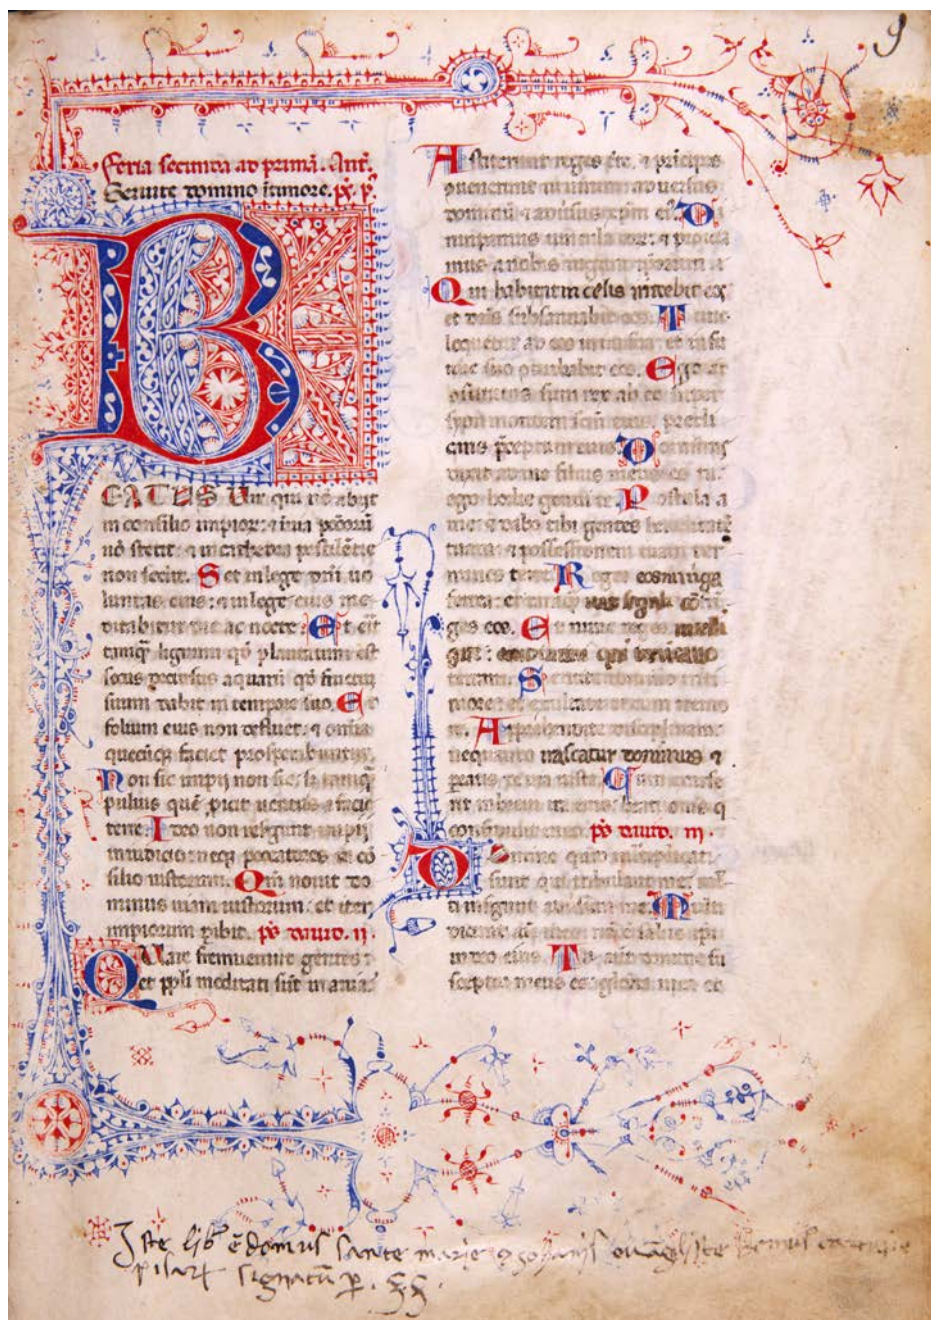 9
Feria secunda ad primā. Ant̄.
Seruite domino ī timore. ps̄. p̄.
BEATUS Uir qui nō abijt
in consilio impior᷑: ⁊ in uia
nō stetit: ⁊ in cathedra pestilētie
non sedit. Set in lege dn̄i uo
luntas eius: ⁊ in lege eius me
ditabitur die ac nocte. Et erit
tamq̄ lignum qd̄ plantatum est
secus decursus aquarū qd̄ fructū
suum dabit in tempore suo. Et
folium eius non defluet: ⁊ omīa
quecūq̄ faciet prosperabuntur.
Non sic impij non sic: s̄ tamq̄
puluis quē p̄icit uentus a facie
terre. Ideo non resurgunt impij
in iudicio: neq̄ peccatores in cō
silio iustorum. Qm̄ nouit do
minus uiam iustorum: et iter
impiorum p̄ibit. ps̄ dauid. ij.
Quare fremuerunt gentes:
et pp̄li meditati sūt inania.
Astiterunt reges t̄re. ⁊ prīcipes
conuenerunt in unum aduersus
dominū ⁊ aduersus xp̄m eī. Di
rumpamus uincula eor᷑: ⁊ proicia
mus a nobis iugum ip̄orum
Qui habitat in celis irridebit eos
et dn̄s subsannabit eos. Tunc
loquetur ad eos in ira sua: et in fu
rore suo conturbabit eos. Ego aū
constitutus sum rex ab eo super
syon montem sc̄m eius. predi
cans p̄ceptum eius. Dominus
dixit ad me filius meus es tu.
ego hodie genui te. Postula a
me: ⁊ dabo tibi gentes hereditatē
tuam: ⁊ possessionem tuam ter
minos terre. Reges eos in uirga
ferrea: et tamq̄ uas figuli cōfrin
ges eos. Et nunc reges intelli
gite: erudimini qui iudicatis
terram. Seruite domino in ti
more: et exultate ei cum tremo
re. Apprehendite disciplinam
nequando irascatur dominus ⁊
pereatis de uia iusta. Cum exarse
rit in breui ira eius: beati om̄s q̄
confidunt in eo. ps̄ dauid. iij.
Domine quid multiplicati
sunt qui tribulant me: mul
ti insurgunt aduersum me. Multi
dicunt aīe mee: nō ē salus ip̄i
in deo eius. Tu aūt domine su
sceptor meus es: gloria mea et
Iste lib̄ ē domus sancte marie ⁊ Johanis euāgliste
pisar᷑ signatū p̱.